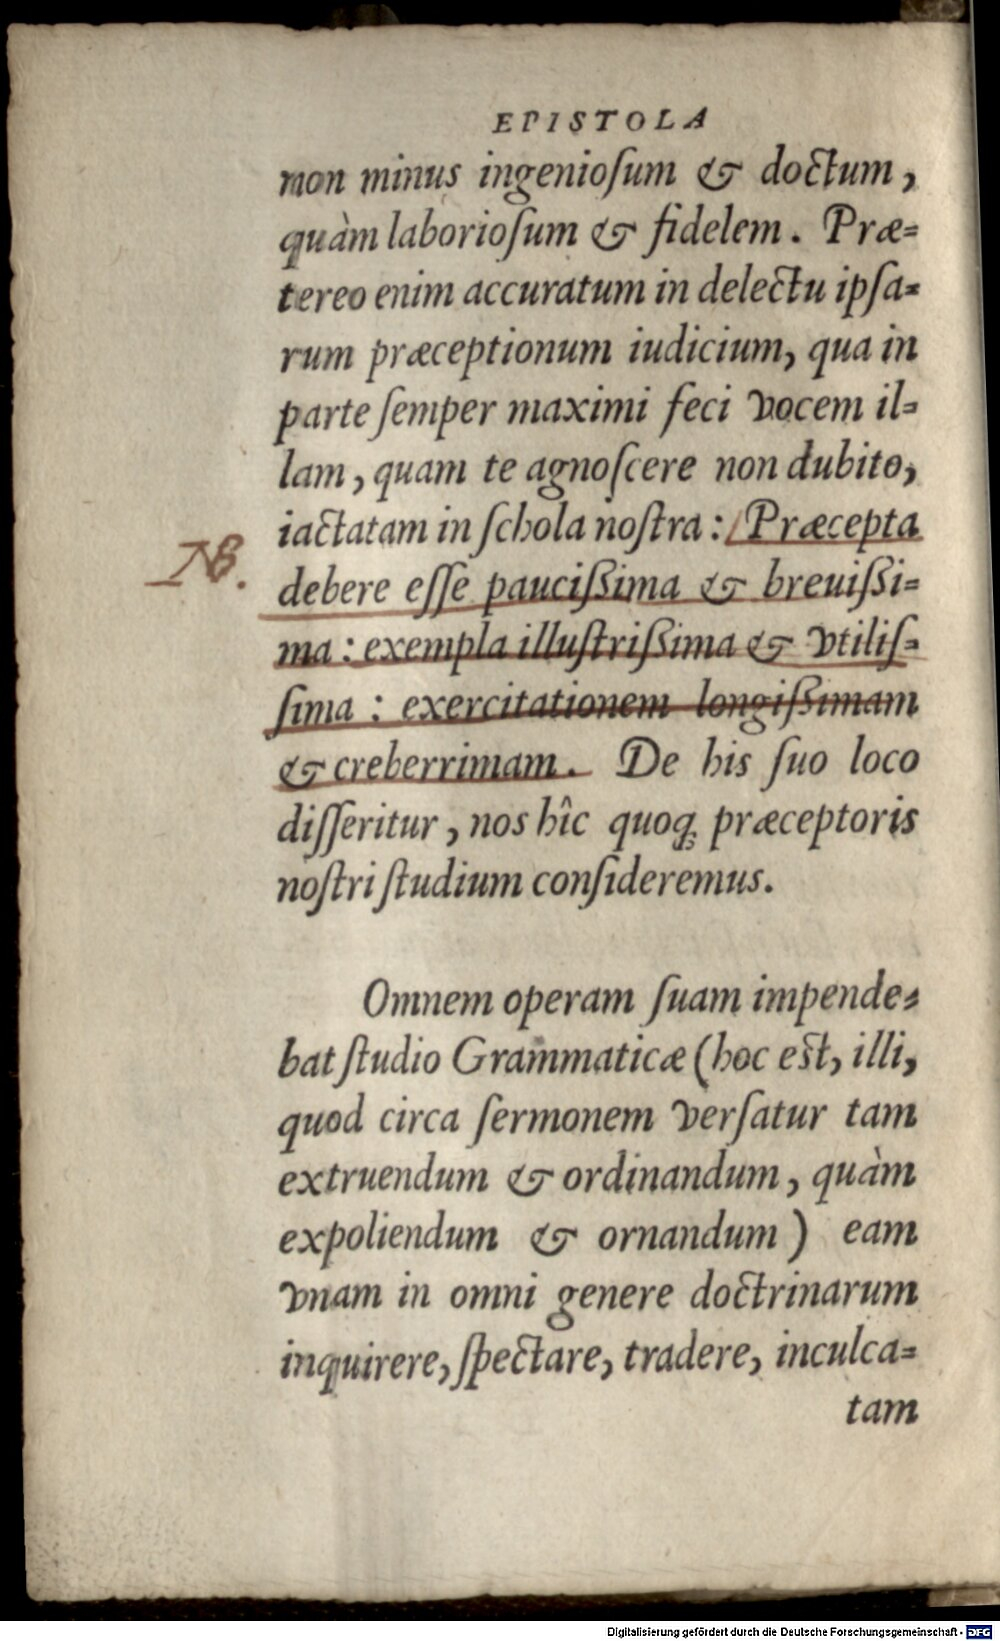 EPISTOLA
non minus ingenioſum & doctum,
quàm laborioſum & fidelem. Præ-
tereo enim accuratum in delectu ipſa-
rum præceptionum iudicium, qua in
parte ſemper maximi feci vocem il-
lam, quam te agnoſcere non dubito,
iactatam in ſchola noſtra: Præcepta
NB.
debere eſſe pauciſſima & breuiſſi-
ma: exempla illuſtriſſima & vtiliſ-
ſima: exercitationem longiſſimam
& creberrimam. De his ſuo loco
diſſeritur, nos hîc quoq; præceptoris
noſtri ſtudium conſideremus.
Omnem operam ſuam impende-
bat ſtudio Grammaticæ (hoc est, illi,
quod circa ſermonem verſatur tam
extruendum & ordinandum, quàm
expoliendum & ornandum) eam
vnam in omni genere doctrinarum
inquirere, ſpectare, tradere, inculca-
tam
Digitalisierung gefördert durch die Deutsche Forschungsgemeinschaft - DFG